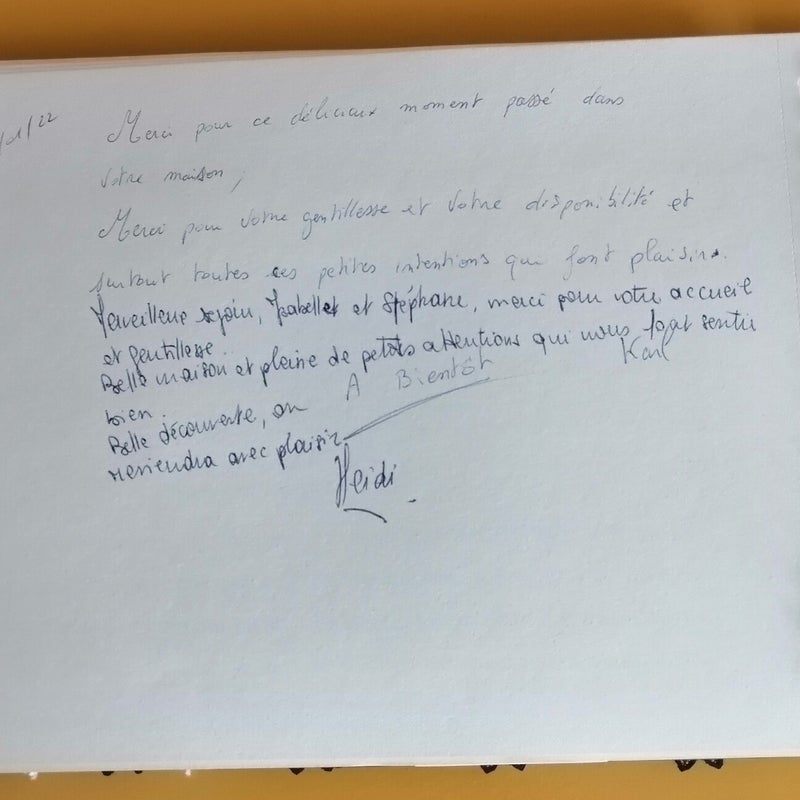 /01/22
Merci pour ce délicieux moment passé dans
votre maison ;
Merci pour votre gentillesse et votre disponibilité et
surtout toutes ces petites intentions qui font plaisir.
Merveilleux sejour, Isabelle et Stéphane, merci pour votre accueil
et gentillesse.
Belle maison et pleine de petits attentions qui nous font sentir
bien.
Karl
A Bientôt
Belle découverte, on
reviendra avec plaisir
Heidi